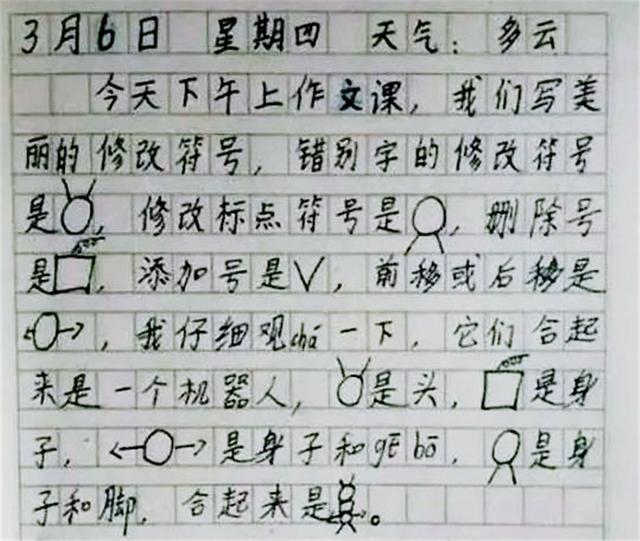 3月6日 星期四 天气：多云
今天下午上作文课，我们写美
丽的修改符号，错别字的修改符号
是，修改标点符号是，删除号
是，添加号是√，前移或后移是
，我仔细观chá一下，它们合起
来是一个机器人，是头，是身
子，是身子和gē bō，是身
子和脚，合起来是。